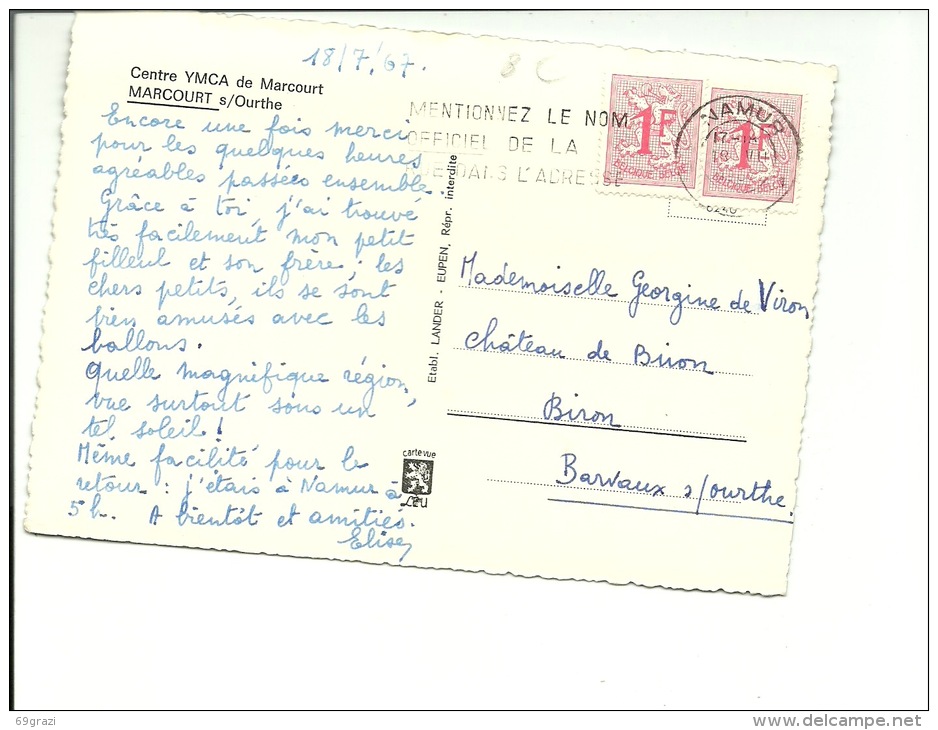 18/7/67.
8 C
Centre YMCA de Marcourt
MARCOURT s/Ourthe
Encore une fois merci
pour les quelques heures
agréables passées ensemble.
Grâce à toi, j'ai trouvé
très facilement mon petit
filleul et son frère ; les
chers petits, ils se sont
bien amusés avec les
ballons.
Quelle magnifique région,
vue surtout sous un
tel soleil !
Même facilité pour le
retour : j'étais à Namur à
5h. A bientôt et amitiés.
Elise
MENTIONNEZ LE NOM
OFFICIEL DE LA
DANS L'ADRESSE
1F
BELGIQUE-BELGIE
NAMUR
17-18
18 VII
1F
BELGIQUE-BELGIE
Etabl. LANDER - EUPEN, Répr. interdite
Mademoiselle Georgine de Viron
château de Biron
Biron
Barvaux s/Ourthe.
carte vue
LEU
69grazi
www.delcampe.net